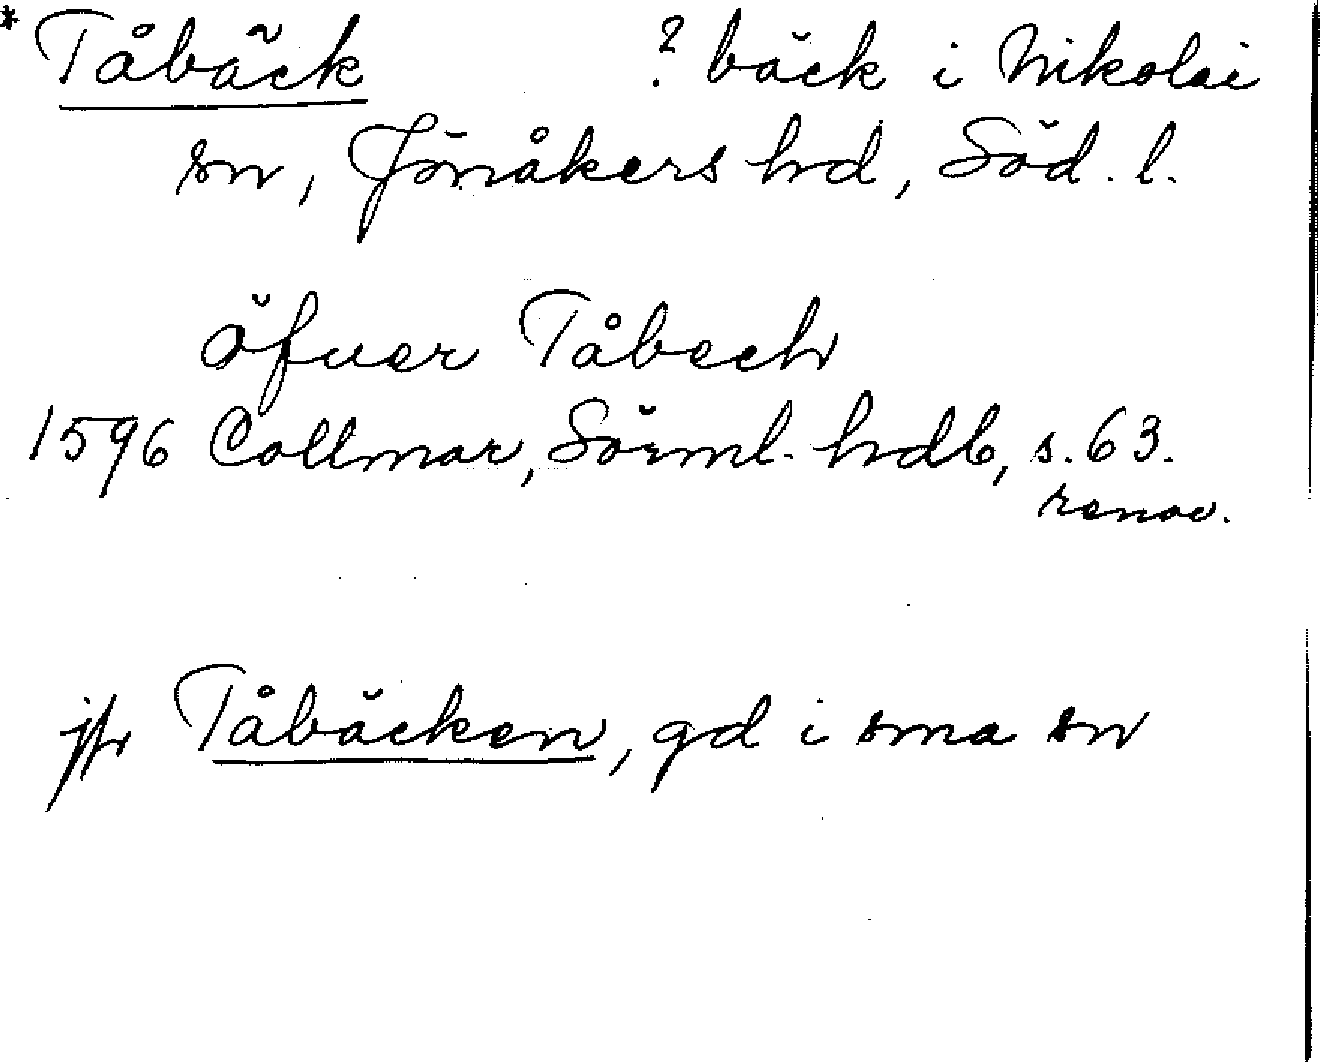 * Tåbäck ? bäck i Nikolai
sn, Jönåkers hd, Söd. l.
öfuer Tåbech
1596 Collmar, Sörml. hdb, s. 63.
renov.
jfr Tåbäcken, gd i sma sn